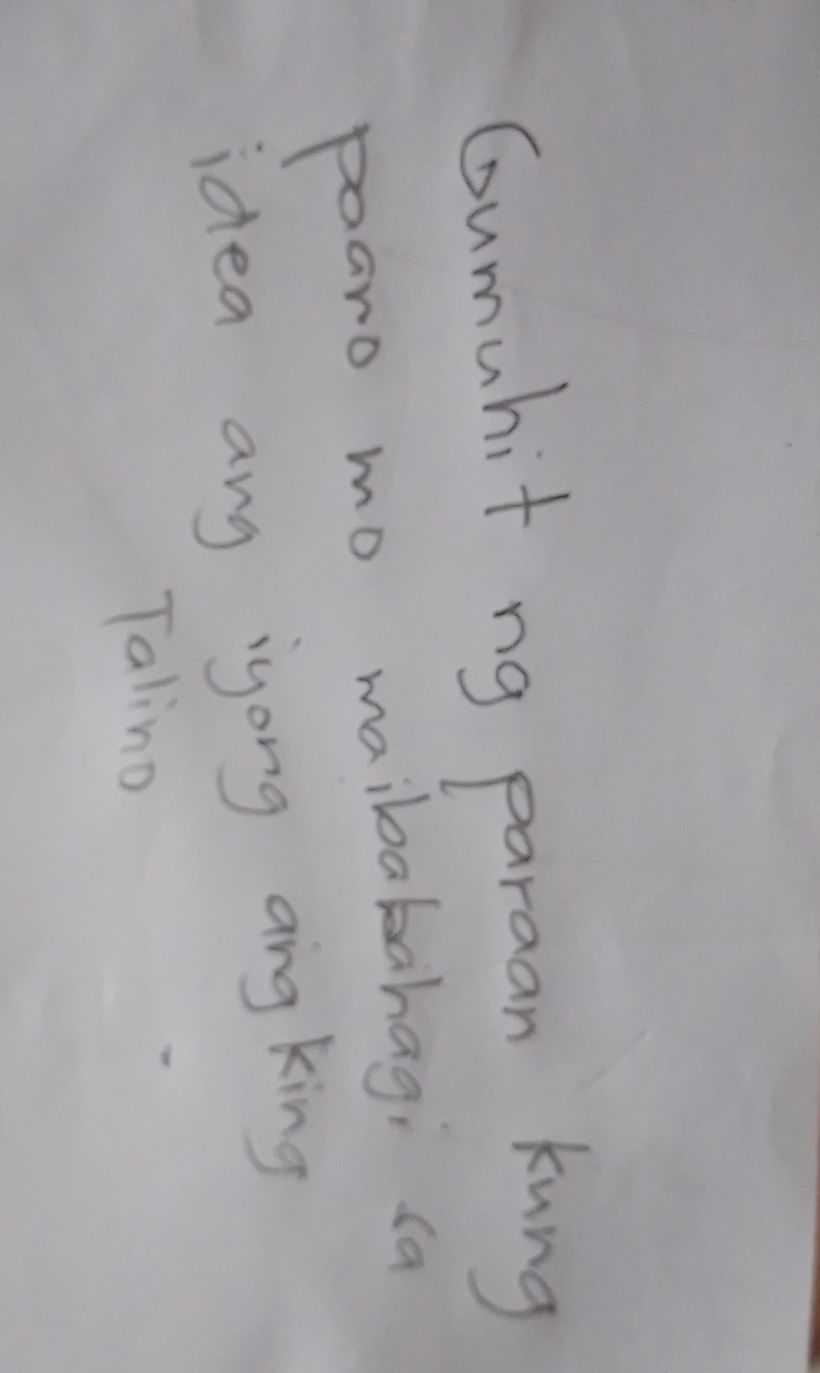 Gumuhit ng paraan kung
paano mo maibabahagi sa
idea ang iyong angking
Talino